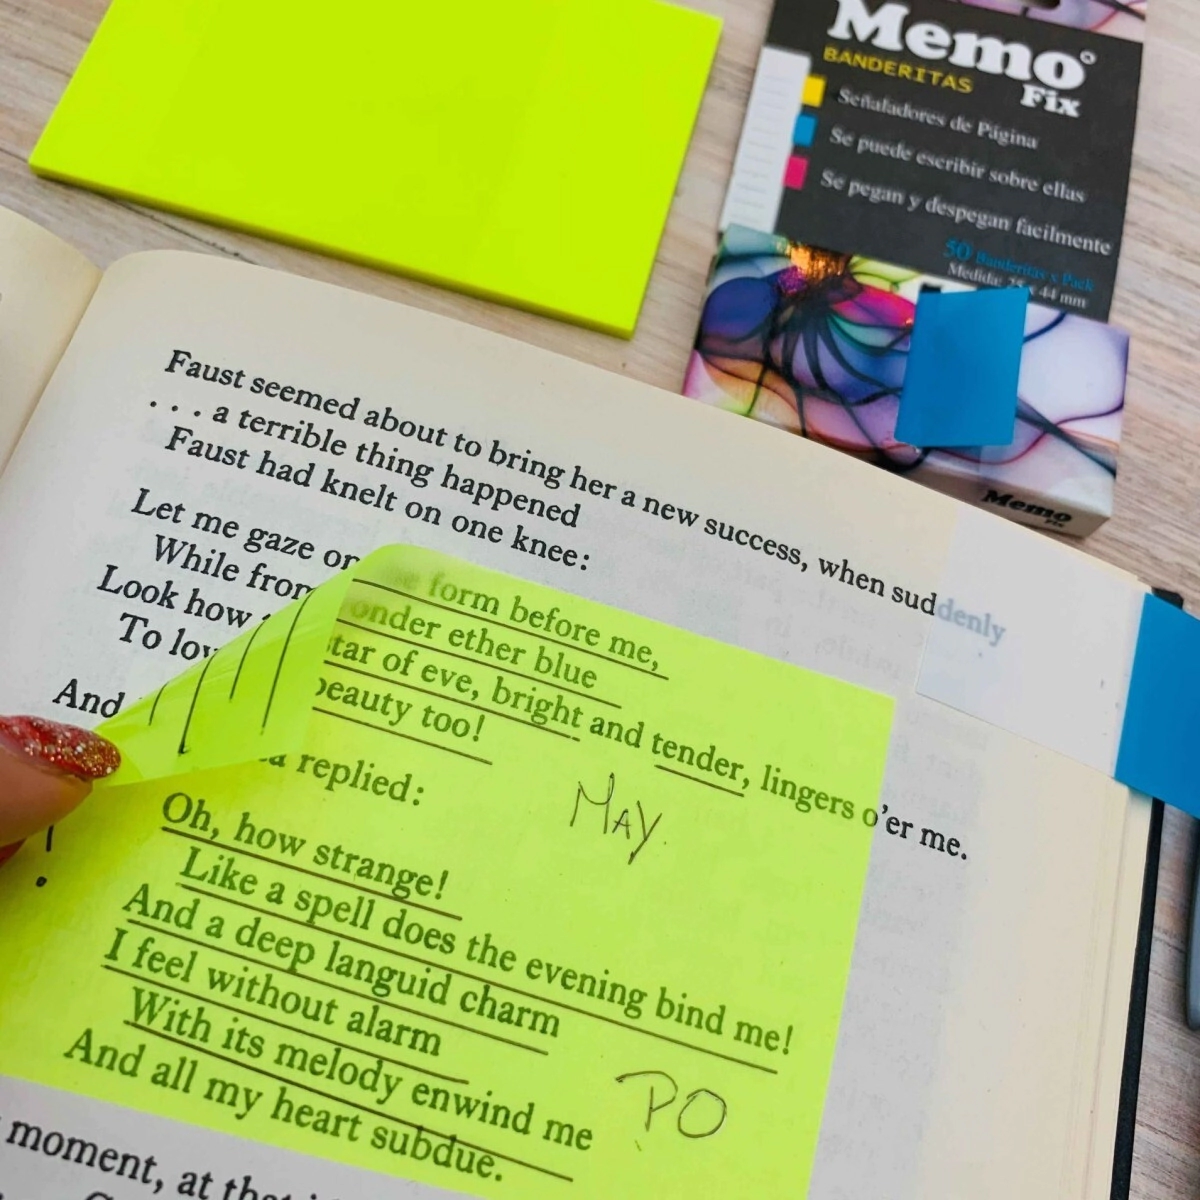 Memo
BANDERITAS
Fix
Señaladores de Página
Se puede escribir sobre ellas
Se pegan y despegan facilmente
50 Banderitas x Pack
Medida: 25 x 44 mm
Memo
Fix
Faust seemed about to bring her a new success, when suddenly
. . . a terrible thing happened
Faust had knelt on one knee:
Let me gaze on form before me,
While from onder ether blue
Look how star of eve, bright and tender, lingers o'er me.
To lov beauty too!
And a replied:
MAY
Oh, how strange!
Like a spell does the evening bind me!
And a deep languid charm
I feel without alarm
With its melody enwind me
And all my heart subdue.
PO
moment, at that